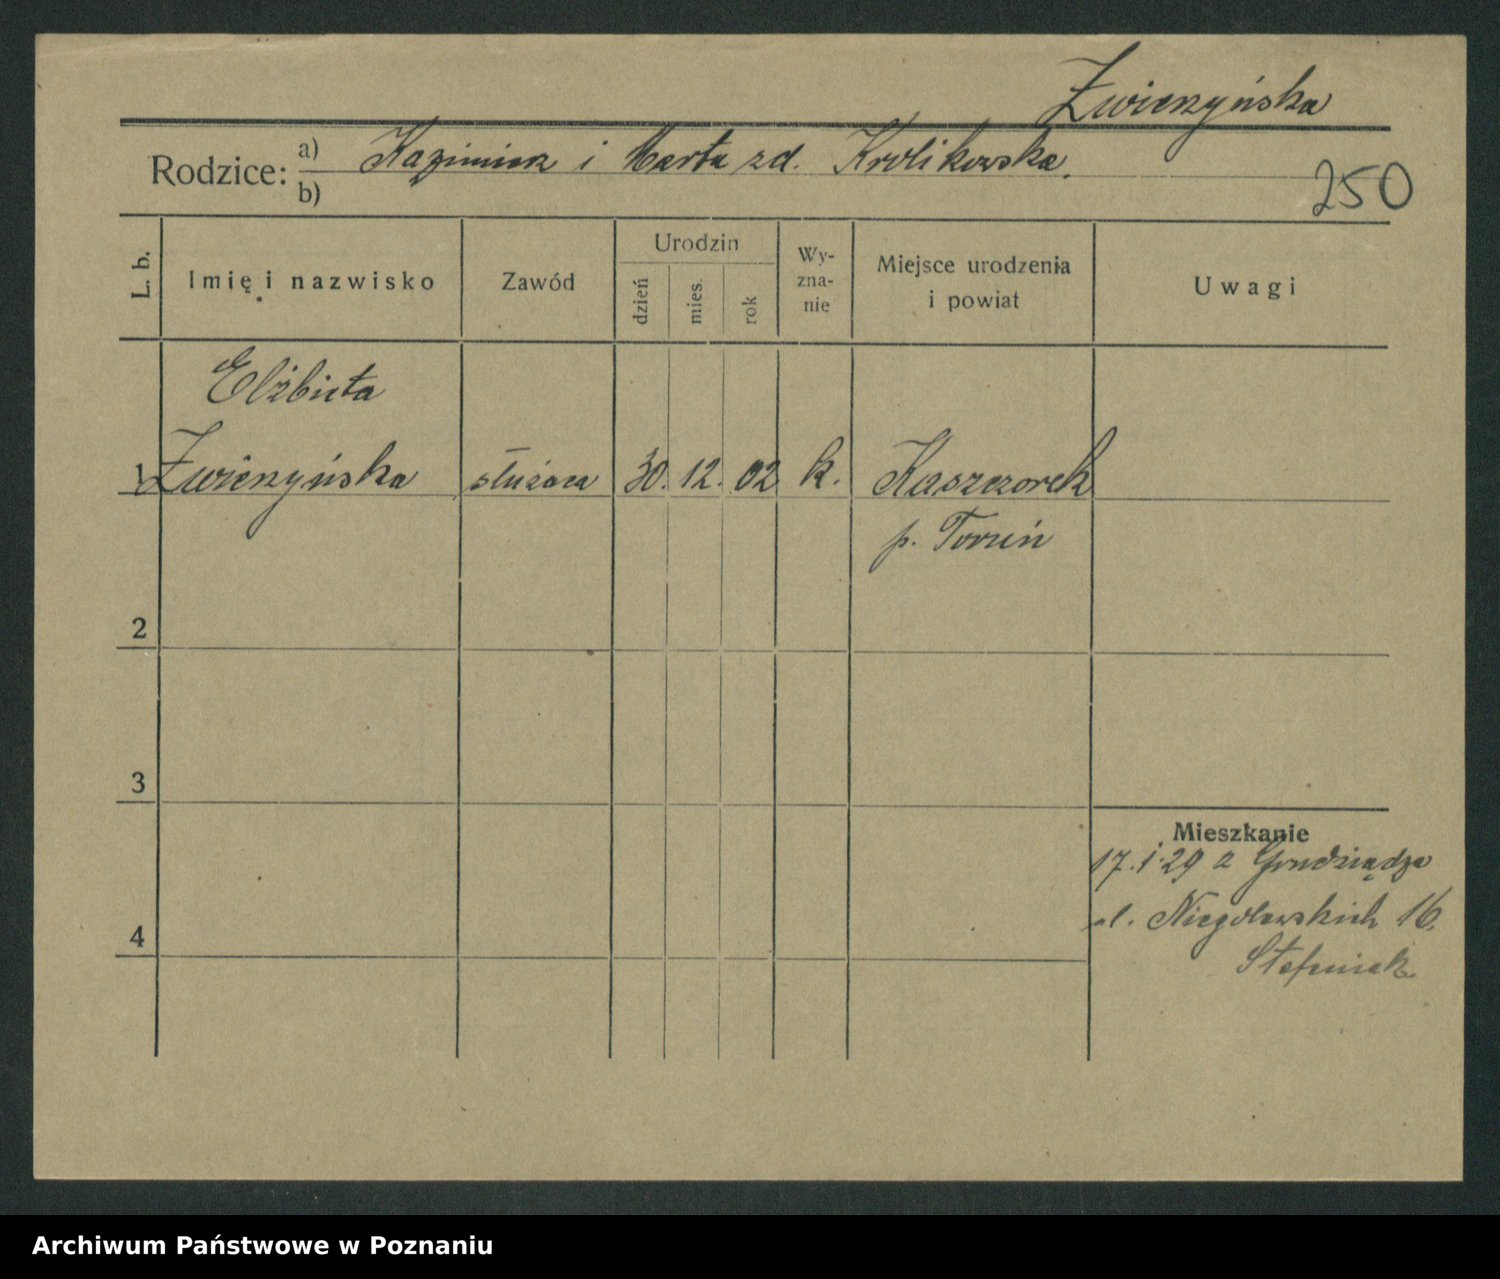 Zwierzyńska
Rodzice: a) Kazimierz i Marta zd. Krolikowska.
b)
250
L. b.
Imię i nazwisko
Zawód
Urodzin
dzień
mies.
rok
Wy-
zna-
nie
Miejsce urodzenia
i powiat
Uwagi
Elżbieta
1 Zwierzyńska służąca 30. 12. 02 k. Kaszczorek
p. Toruń
2
3
Mieszkanie
17. 1. 29 z Grudziądza
ul. Niegolewskich 16.
4
Stefaniak
Archiwum Państwowe w Poznaniu